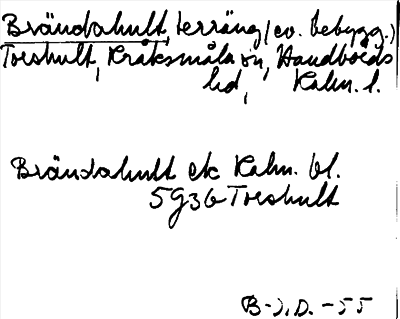 Brändahult, terräng (ev. bebygg.)
Toeshult, Kråksmåla sn, Handbörds
hd, Kalm. l.
Brändahult ek Kalm. bl.
5g36 Toeshult
B-J.D. -55